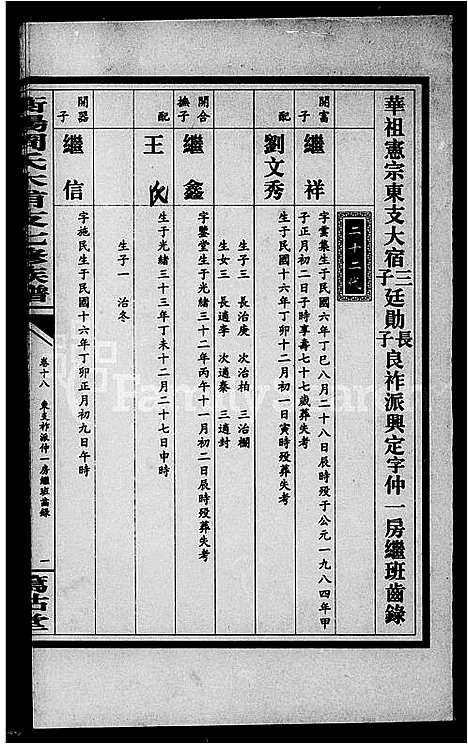 華祖憲宗東支大宿三子廷勛長子良祚派興定字仲一房繼班齒錄
二十二代
開富子 繼祥 字雲集生于民國六年丁巳八月二十八日辰時歿于公元一九八四年甲
子正月初二日子時享壽七十七歲葬失考
配 劉文秀 生于民國十六年丁卯十二月初一日寅時歿葬失考
生子三 長治庚 次治柏 三治欄
生女三 長適李 次適秦 三適封
開合撫子 繼鑫 字鑒堂生于光緒三十二年丙午十一月初二日辰時歿葬失考
配 王氏 生于光緒三十三年丁未十二月二十七日申時
生子一 治冬
開器子 繼信 字施民生于民國十六年丁卯正月初九日午時
衡陽周氏大宿支七修族譜
卷十八 東支祚派仲一房繼班齒錄 一
篤祜堂